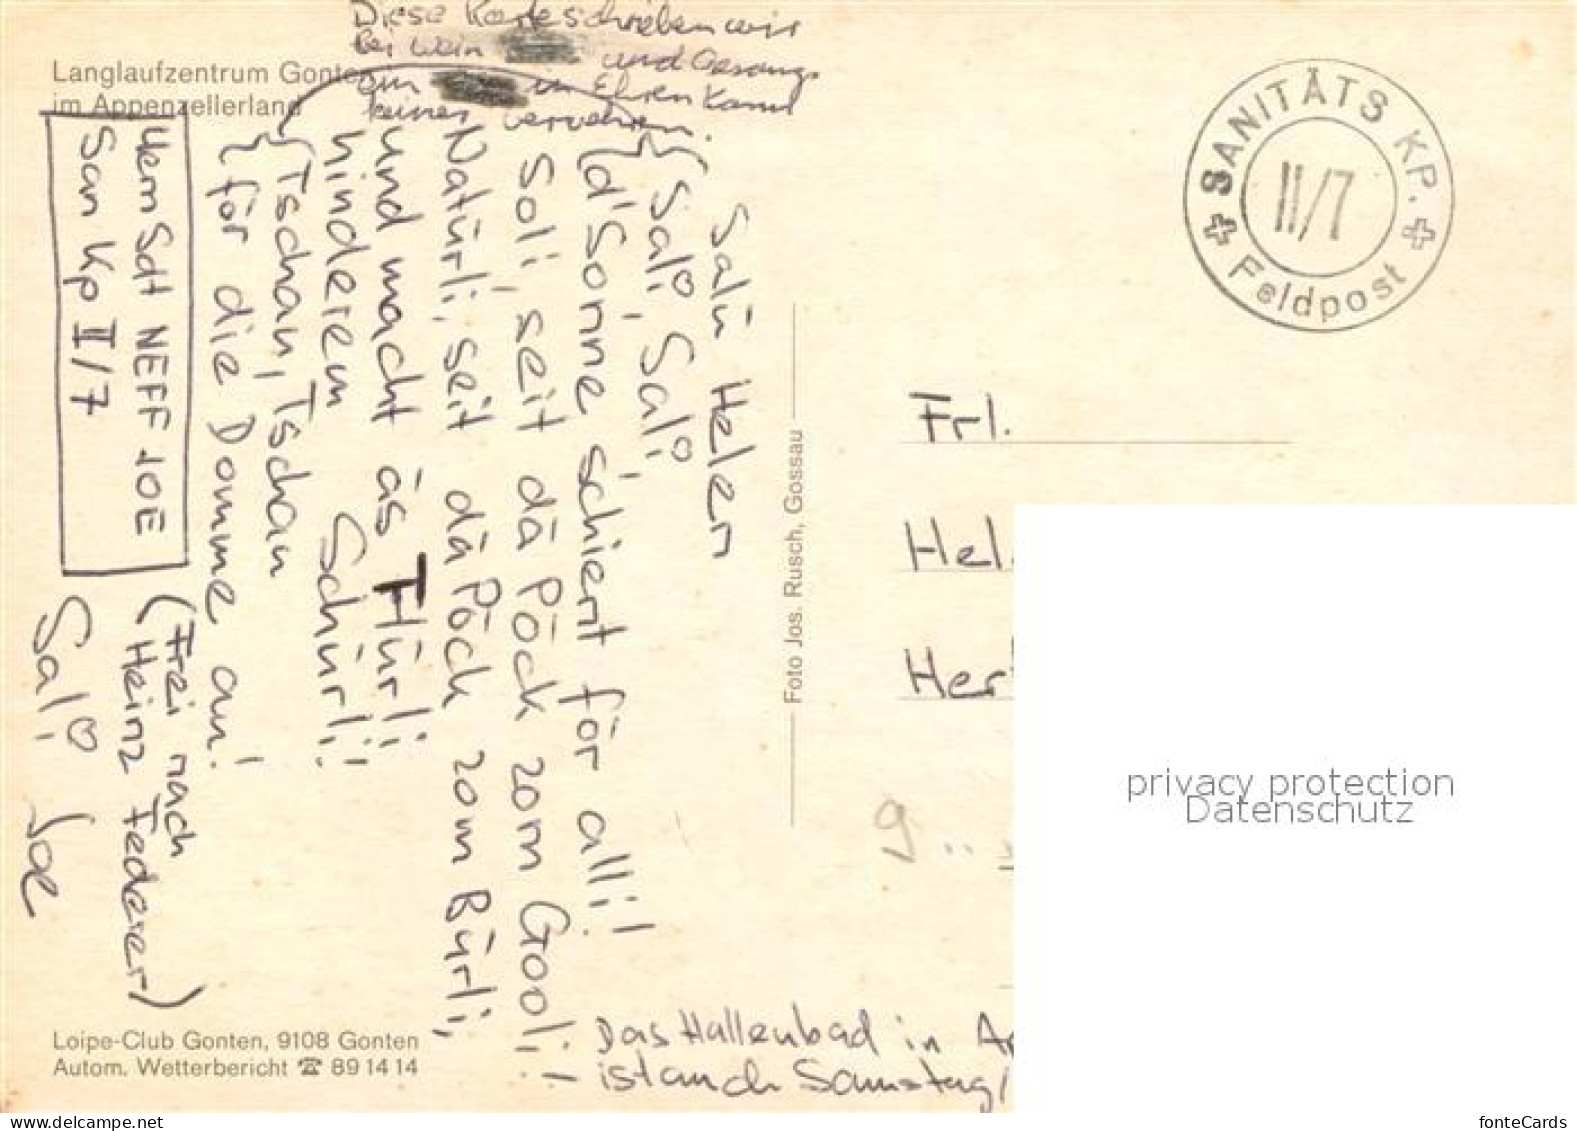 Diese Karte schrieben wir
bei Wein und Gesang
ein in Ehren kann
keiner verwehren.
Langlaufzentrum Gonten
im Appenzellerland
Salü Helen
Sali, Sali
d'Sonne schient för all!
Soli, seit dä Pöck zom Gool,
Natürli, seit dä Pöck zom Bürli,
und macht äs Türli
hinderem Schürli!
Tschau, Tschau
för die Domme au!
Herr Sdt NEFF JOE
San Kp II/7
(Frei nach
Heinz Federer)
Sali Joe
Das Hallenbad in
ist auch Samstag/
Loipe-Club Gonten, 9108 Gonten
Autom. Wetterbericht ☎ 89 14 14
Foto Jos. Rusch, Gossau
SANITÄTS KP.
II/7
Feldpost
Frl.
Hel
Her
9
privacy protection
Datenschutz
www.delcampe.net
fonteCards